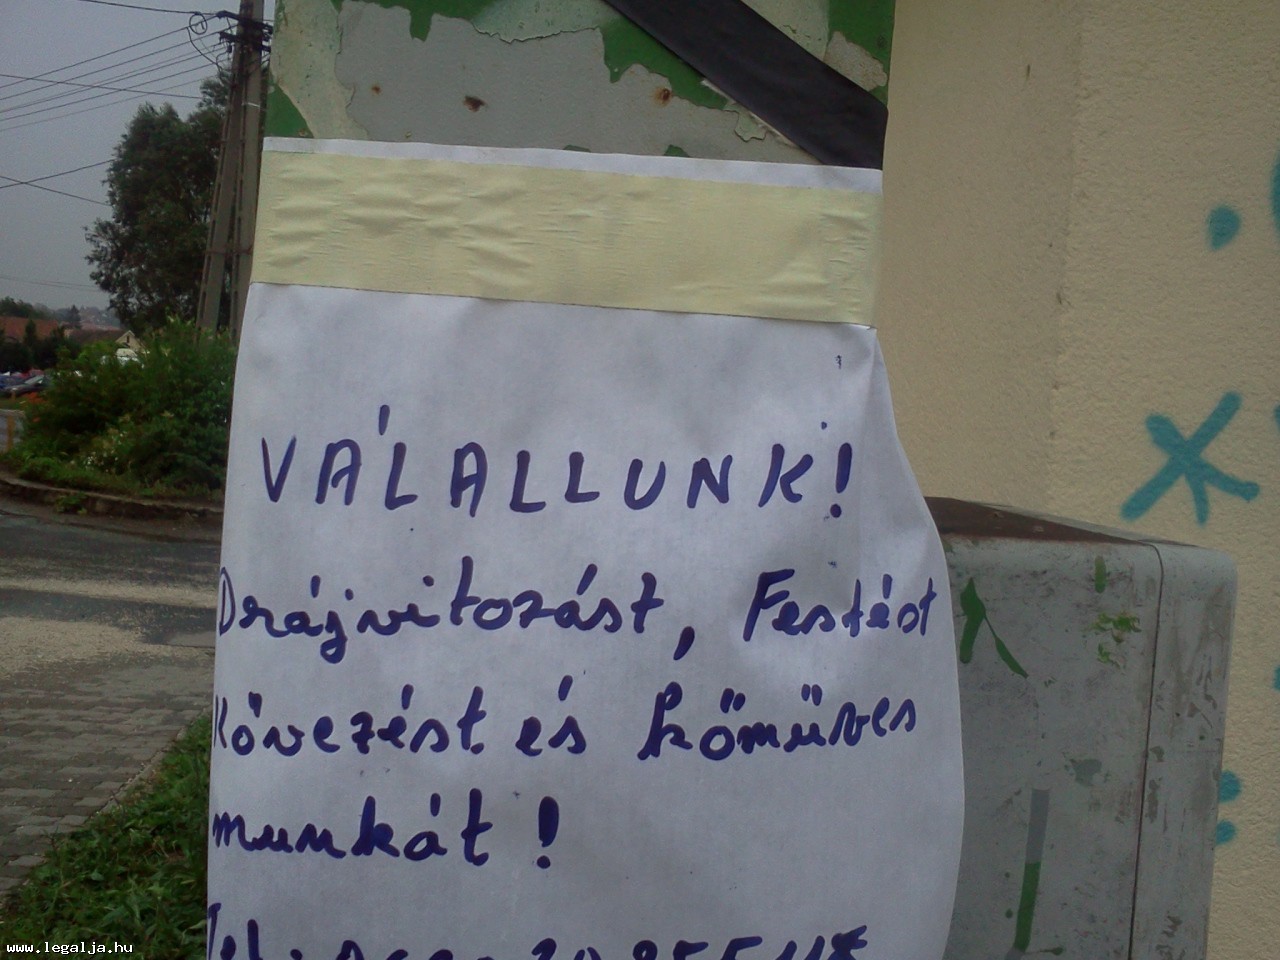 VÁLALLUNK!
Drájvitozást, Festést
Kövezést és kőmüves
munkát!
Tel:
www.legalja.hu